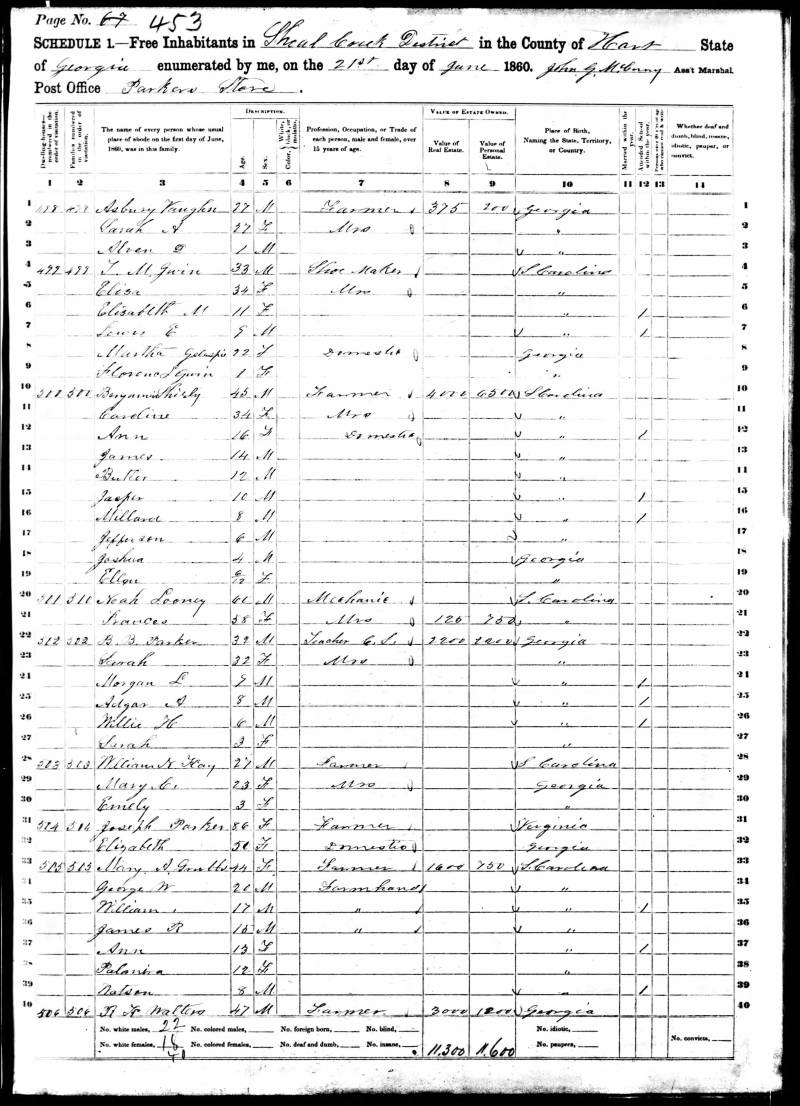 Page No. 67 453
SCHEDULE 1.—Free Inhabitants in Shoal Creek District in the County of Hart State
of Georgia enumerated by me, on the 21st day of June 1860. John G. McCurry Ass't Marshal.
Post Office Parkers Store.
Dwelling-houses—numbered in the order of visitation.
Families numbered in the order of visitation.
The name of every person whose usual place of abode on the first day of June, 1860, was in this family.
DESCRIPTION.
Age.
Sex.
Color, White, black, or mulatto.
Profession, Occupation, or Trade of each person, male and female, over 15 years of age.
VALUE OF ESTATE OWNED.
Value of Real Estate.
Value of Personal Estate.
Place of Birth, Naming the State, Territory, or Country.
Married within the year.
Attended School within the year.
Whether deaf and dumb, blind, insane, idiotic, pauper, or convict.
1 2 3 4 5 6 7 8 9 10 11 12 13 14
1 498 498 Asbury Vaughn 27 M Farmer 375 200 Georgia 1
2 Sarah A 27 F Mrs " 2
3 Alven D 1 M " 3
4 499 499 T. M. Gwin 33 M Shoe Maker S. Carolina 4
5 Eliza 34 F Mrs " 5
6 Elizabeth M 11 F " / 6
7 Lewis E 9 M " / 7
8 Martha 22 F Domestic Georgia 8
9 Gwin 1 F " 9
10 500 500 Benjamin Shirly 45 M Farmer 4000 6500 S Carolina 10
11 Caroline 34 F Mrs " 11
12 Ann 16 F Domestic " / 12
13 James 14 M " 13
14 Butler 12 M " 14
15 Jasper 10 M " / 15
16 Millard 8 M " / 16
17 Jefferson 6 M " 17
18 Joshua 4 M Georgia 18
19 Ellen F " 19
20 501 510 Noah Looney 60 M Mechanic S. Carolina 20
21 Frances 58 F Mrs 125 750 " 21
22 502 502 B. B. Parker 32 M Teacher C. S. 2200 Georgia 22
23 Sarah 32 F Mrs " 23
24 Morgan L 9 M " / 24
25 Adgar A 8 M " / 25
26 Willie H 6 M " / 26
27 Sarah 3 F " 27
28 503 503 William N. Kay 27 M Farmer S. Carolina 28
29 Mary C. 23 F Mrs Georgia 29
30 Emely 3 F " 30
31 504 504 Joseph Parker 86 F Farmer Virginia 31
32 Elizabeth 50 F Domestic Georgia 32
33 505 505 Mary A Grubbs 44 F Farmer 1600 750 S. Carolina 33
34 George W 20 M Farmhand " 34
35 William 17 M " " / 35
36 James R 15 M " " 36
37 Ann 13 F " / 37
38 12 F " 38
39 Watson 8 M " / 39
40 506 506 Walters 47 M Farmer 3000 1200 Georgia 40
No. white males, 22 No. colored males, No. foreign born, No. blind, No. idiotic,
No. white females, 18 No. colored females, No. deaf and dumb, No. insane, 11,300 11,600 No. paupers, No. convicts,